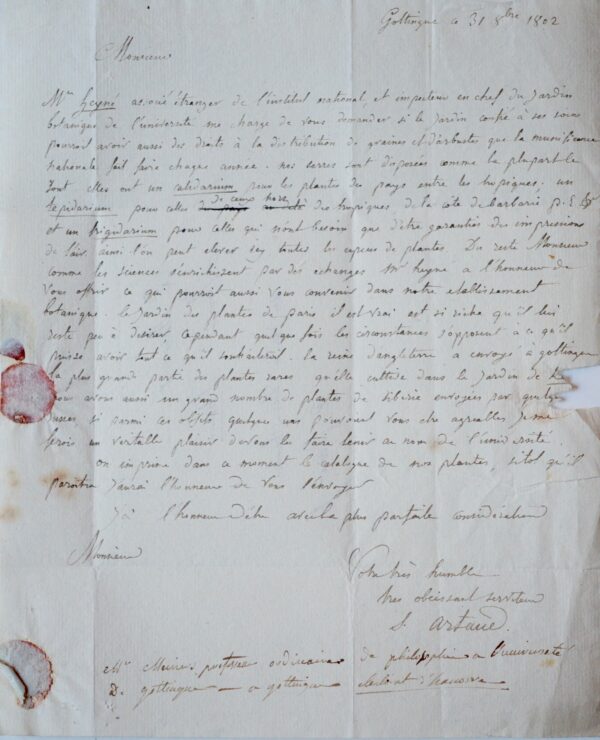 Gottingue ce 31 8bre 1802
Monsieur
Mr heyné associé étranger de l'institut national, et inspecteur en chef du Jardin
botanique de l'université me charge de vous demander si le Jardin confié à ses soins
pourroit avoir aussi des droits à la distribution de graines et d'arbustes que la munificence
nationale fait faire chaque année. nos serres sont disposées comme la plupart le
sont elles ont un caledarium pour les plantes des pays entre les tropiques; un
tepidarium pour celles de ceux hors des tropiques de la côte de barbarie p. E.
et un frigidarium pour celles qui n'ont besoin que d'être garanties des impressions
de l'air. ainsi l'on peut elever icy toutes les especes de plantes. Du reste Monsieur
comme les sciences s'enrichissent par des echanges Mr heyne a l'honneur de
vous offrir ce qui pourroit aussi vous convenir dans notre etablissement
botanique. le Jardin des plantes de paris il est vrai est si riche qu'il lui
reste peu à desirer, Cependant quelque fois les circonstances s'opposent à ce qu'il
puisse avoir tout ce qu'il souhaiteroit. la reine d'angleterre a envoyé à gottingen
la plus grande partie des plantes rares qu'elle cultive dans le Jardin de
nous avons aussi un grand nombre de plantes de Siberie envoyées par quelques
russes si parmi ces objets quelques uns pouvoient vous etre agreables Je me
ferois un veritable plaisir de vous les faire tenir au nom de l'université.
on imprime dans ce moment le catalogue de nos plantes, sitot qu'il
paroitra J'aurai l'honneur de vous l'envoyer
J'ai l'honneur d'etre avec la plus parfaite consideration
Monsieur
Votre très humble
tres obeissant serviteur
S. Artaud.
Mr Meiners professeur ordinaire de philosophie a l'université
D. gottingue — a gottingue electorat d'hanovre